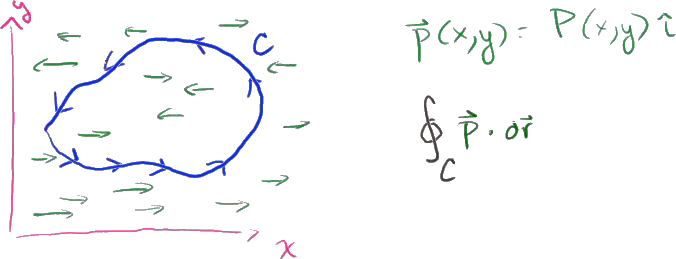 y
C
x
$\vec{P}(x,y) = P(x,y)\hat{\imath}$
$\oint_C \vec{P} \cdot d\vec{r}$